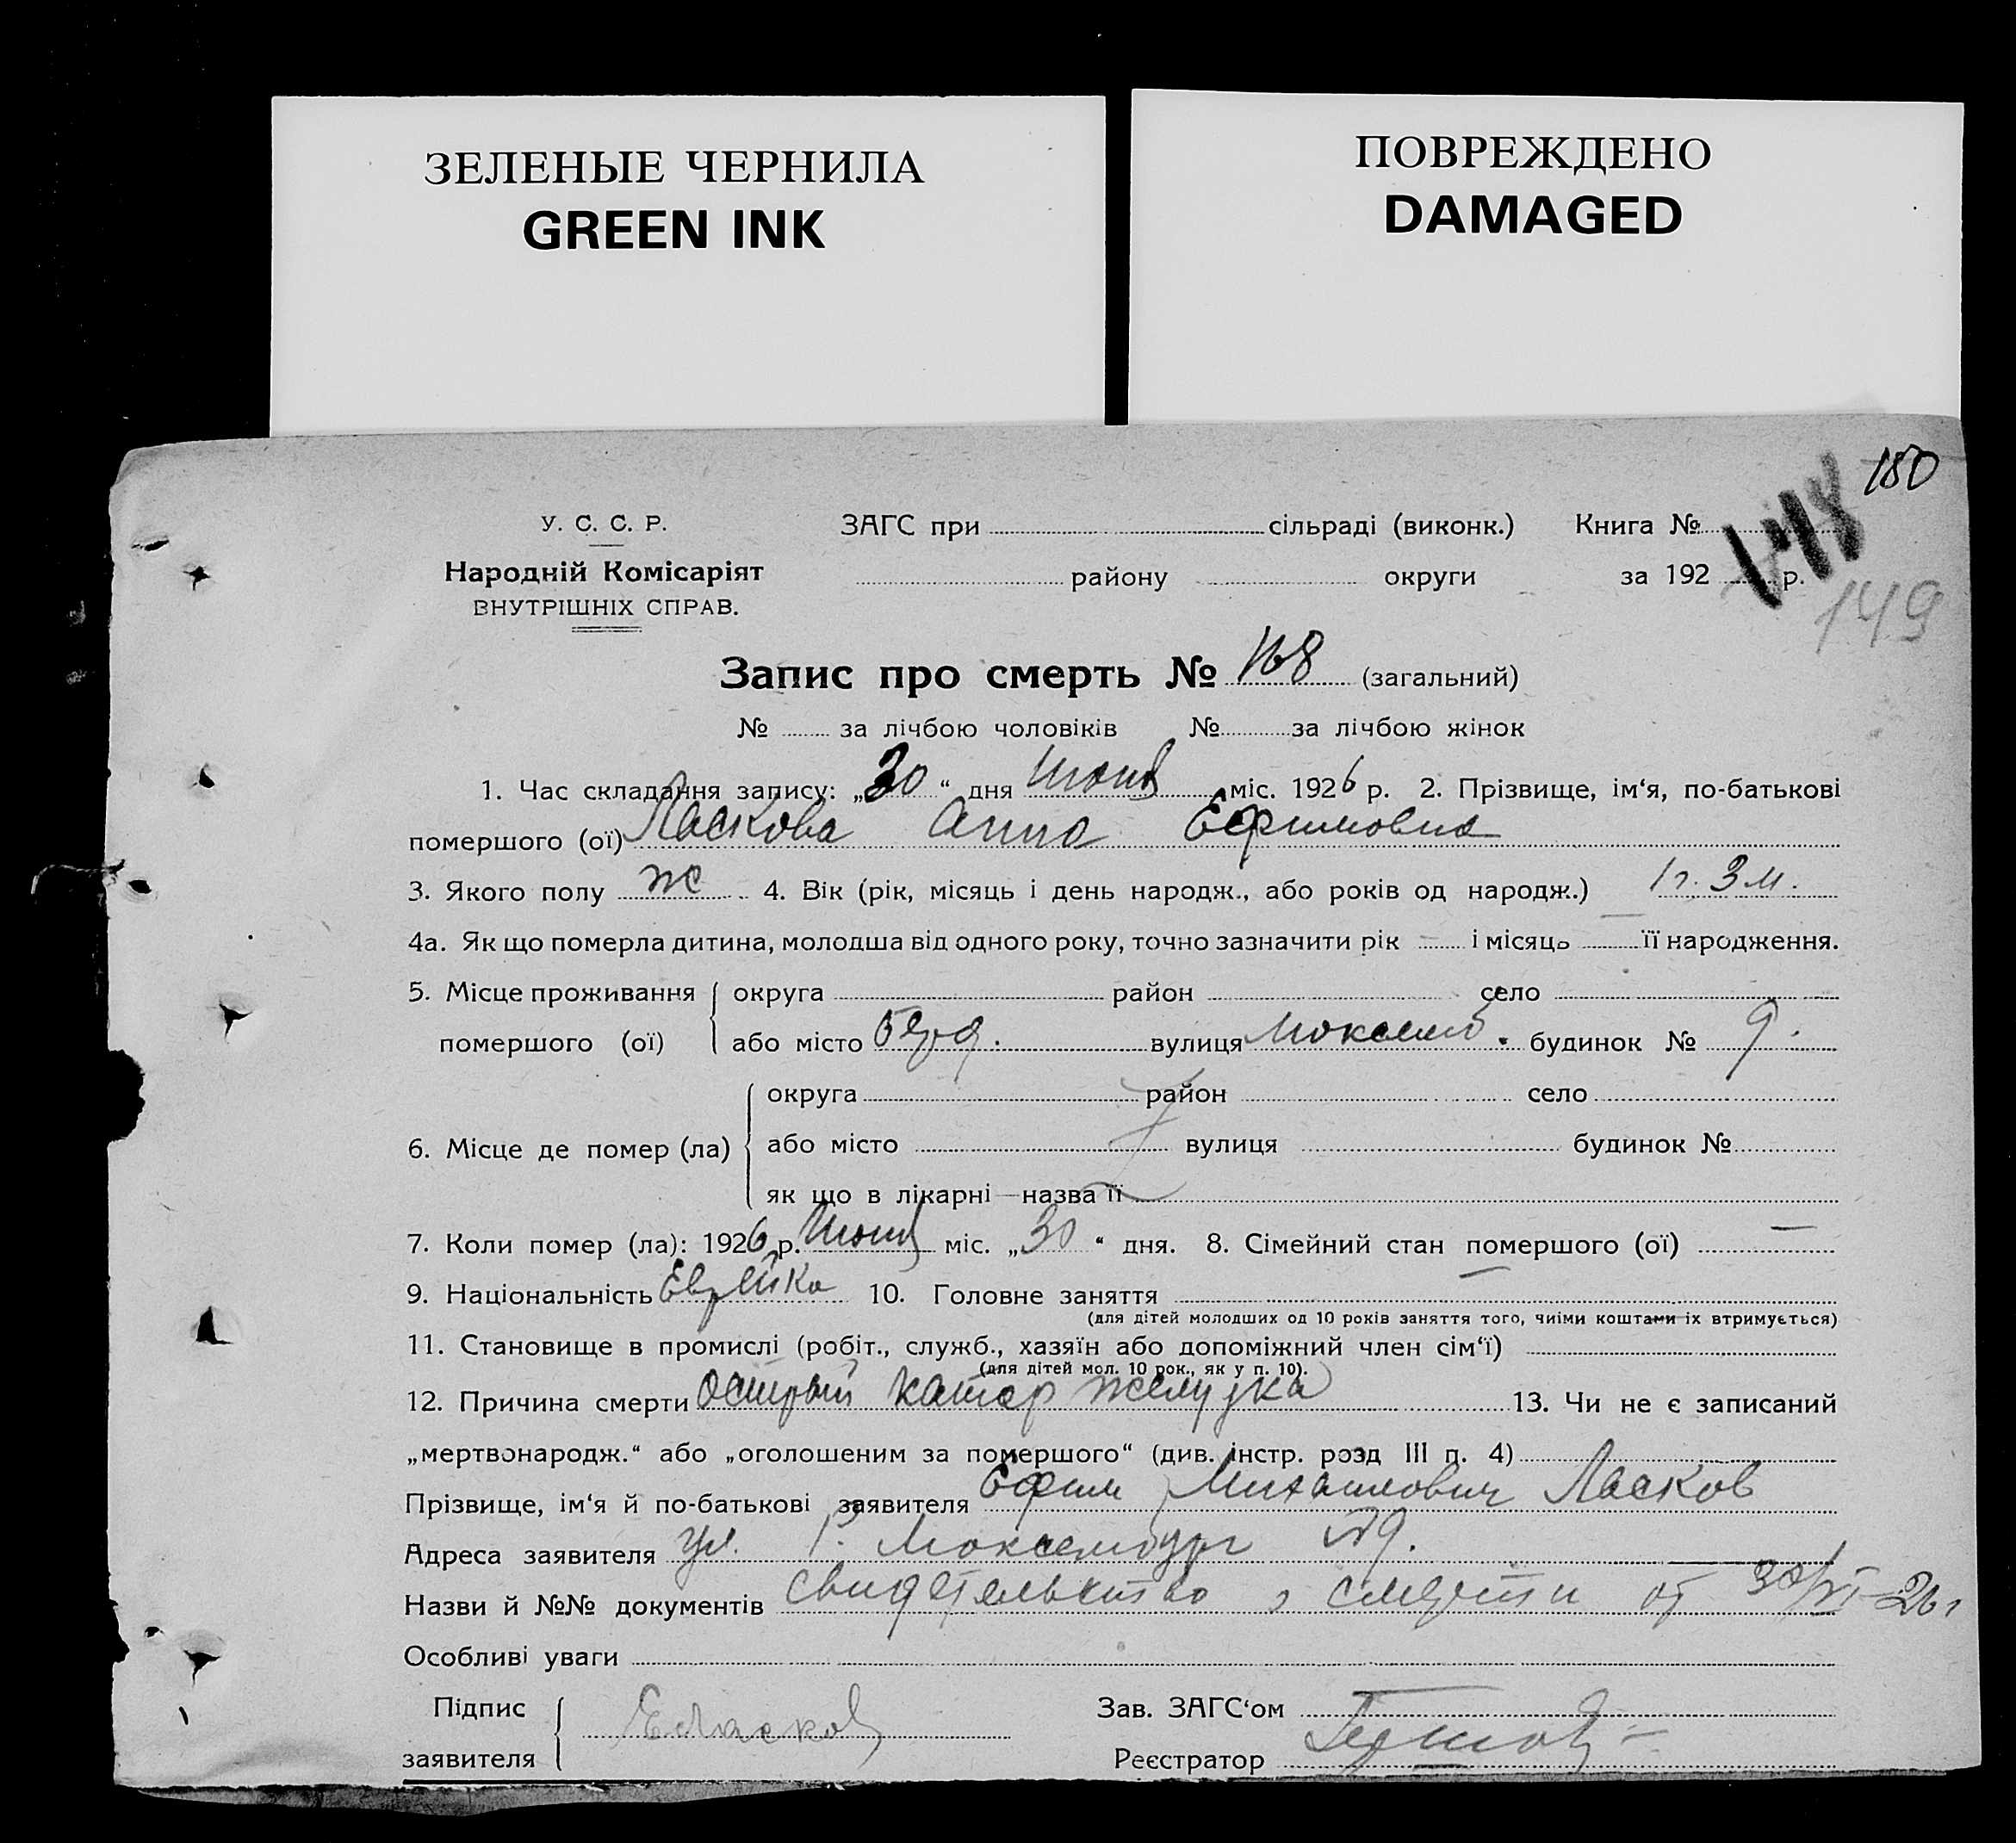 ЗЕЛЕНЫЕ ЧЕРНИЛА
GREEN INK
ПОВРЕЖДЕНО
DAMAGED
180
149
У. С. С. Р.
Народній Комісаріят
ВНУТРІШНІХ СПРАВ.
ЗАГС при сільраді (виконк.) Книга №
району округи за 192 р.
Запис про смерть № 168 (загальний)
№ за лічбою чоловіків № за лічбою жінок
1. Час складання запису: „30“ дня Июня міс. 1926 р. 2. Прізвище, ім‘я, по-батькові
помершого (ої) Ласкова Анна Ефимовна
3. Якого полу ж 4. Вік (рік, місяць і день народж., або років од народж.) 1 г. 3 м.
4а. Як що померла дитина, молодша від одного року, точно зазначити рік — і місяць її народження.
5. Місце проживання округа район село
помершого (ої) або місто вулиця будинок № 9.
округа район село
6. Місце де помер (ла) або місто вулиця будинок №
як що в лікарні—назва її
7. Коли помер (ла): 1926 р. Июня міс. „30“ дня. 8. Сімейний стан помершого (ої) —
9. Національність Еврейка 10. Головне заняття —
(для дітей молодших од 10 років заняття того, чиїми коштами їх втримується)
11. Становище в промислі (робіт., служб., хазяїн або допоміжний член сім‘ї)
(для дітей мол. 10 рок., як у п. 10).
12. Причина смерти Острый катар желудка 13. Чи не є записаний
„мертвонародж.“ або „оголошеним за помершого“ (див. інстр. розд III п. 4)
Прізвище, ім‘я й по-батькові заявителя Ефим Михайлович Ласков
Адреса заявителя ул. Р. №9.
Назви й №№ документів свидетельство о смерти от 30/VI–26 г
Особливі уваги
Підпис Зав. ЗАГС‘ом
Е Ласков
заявителя Реєстратор